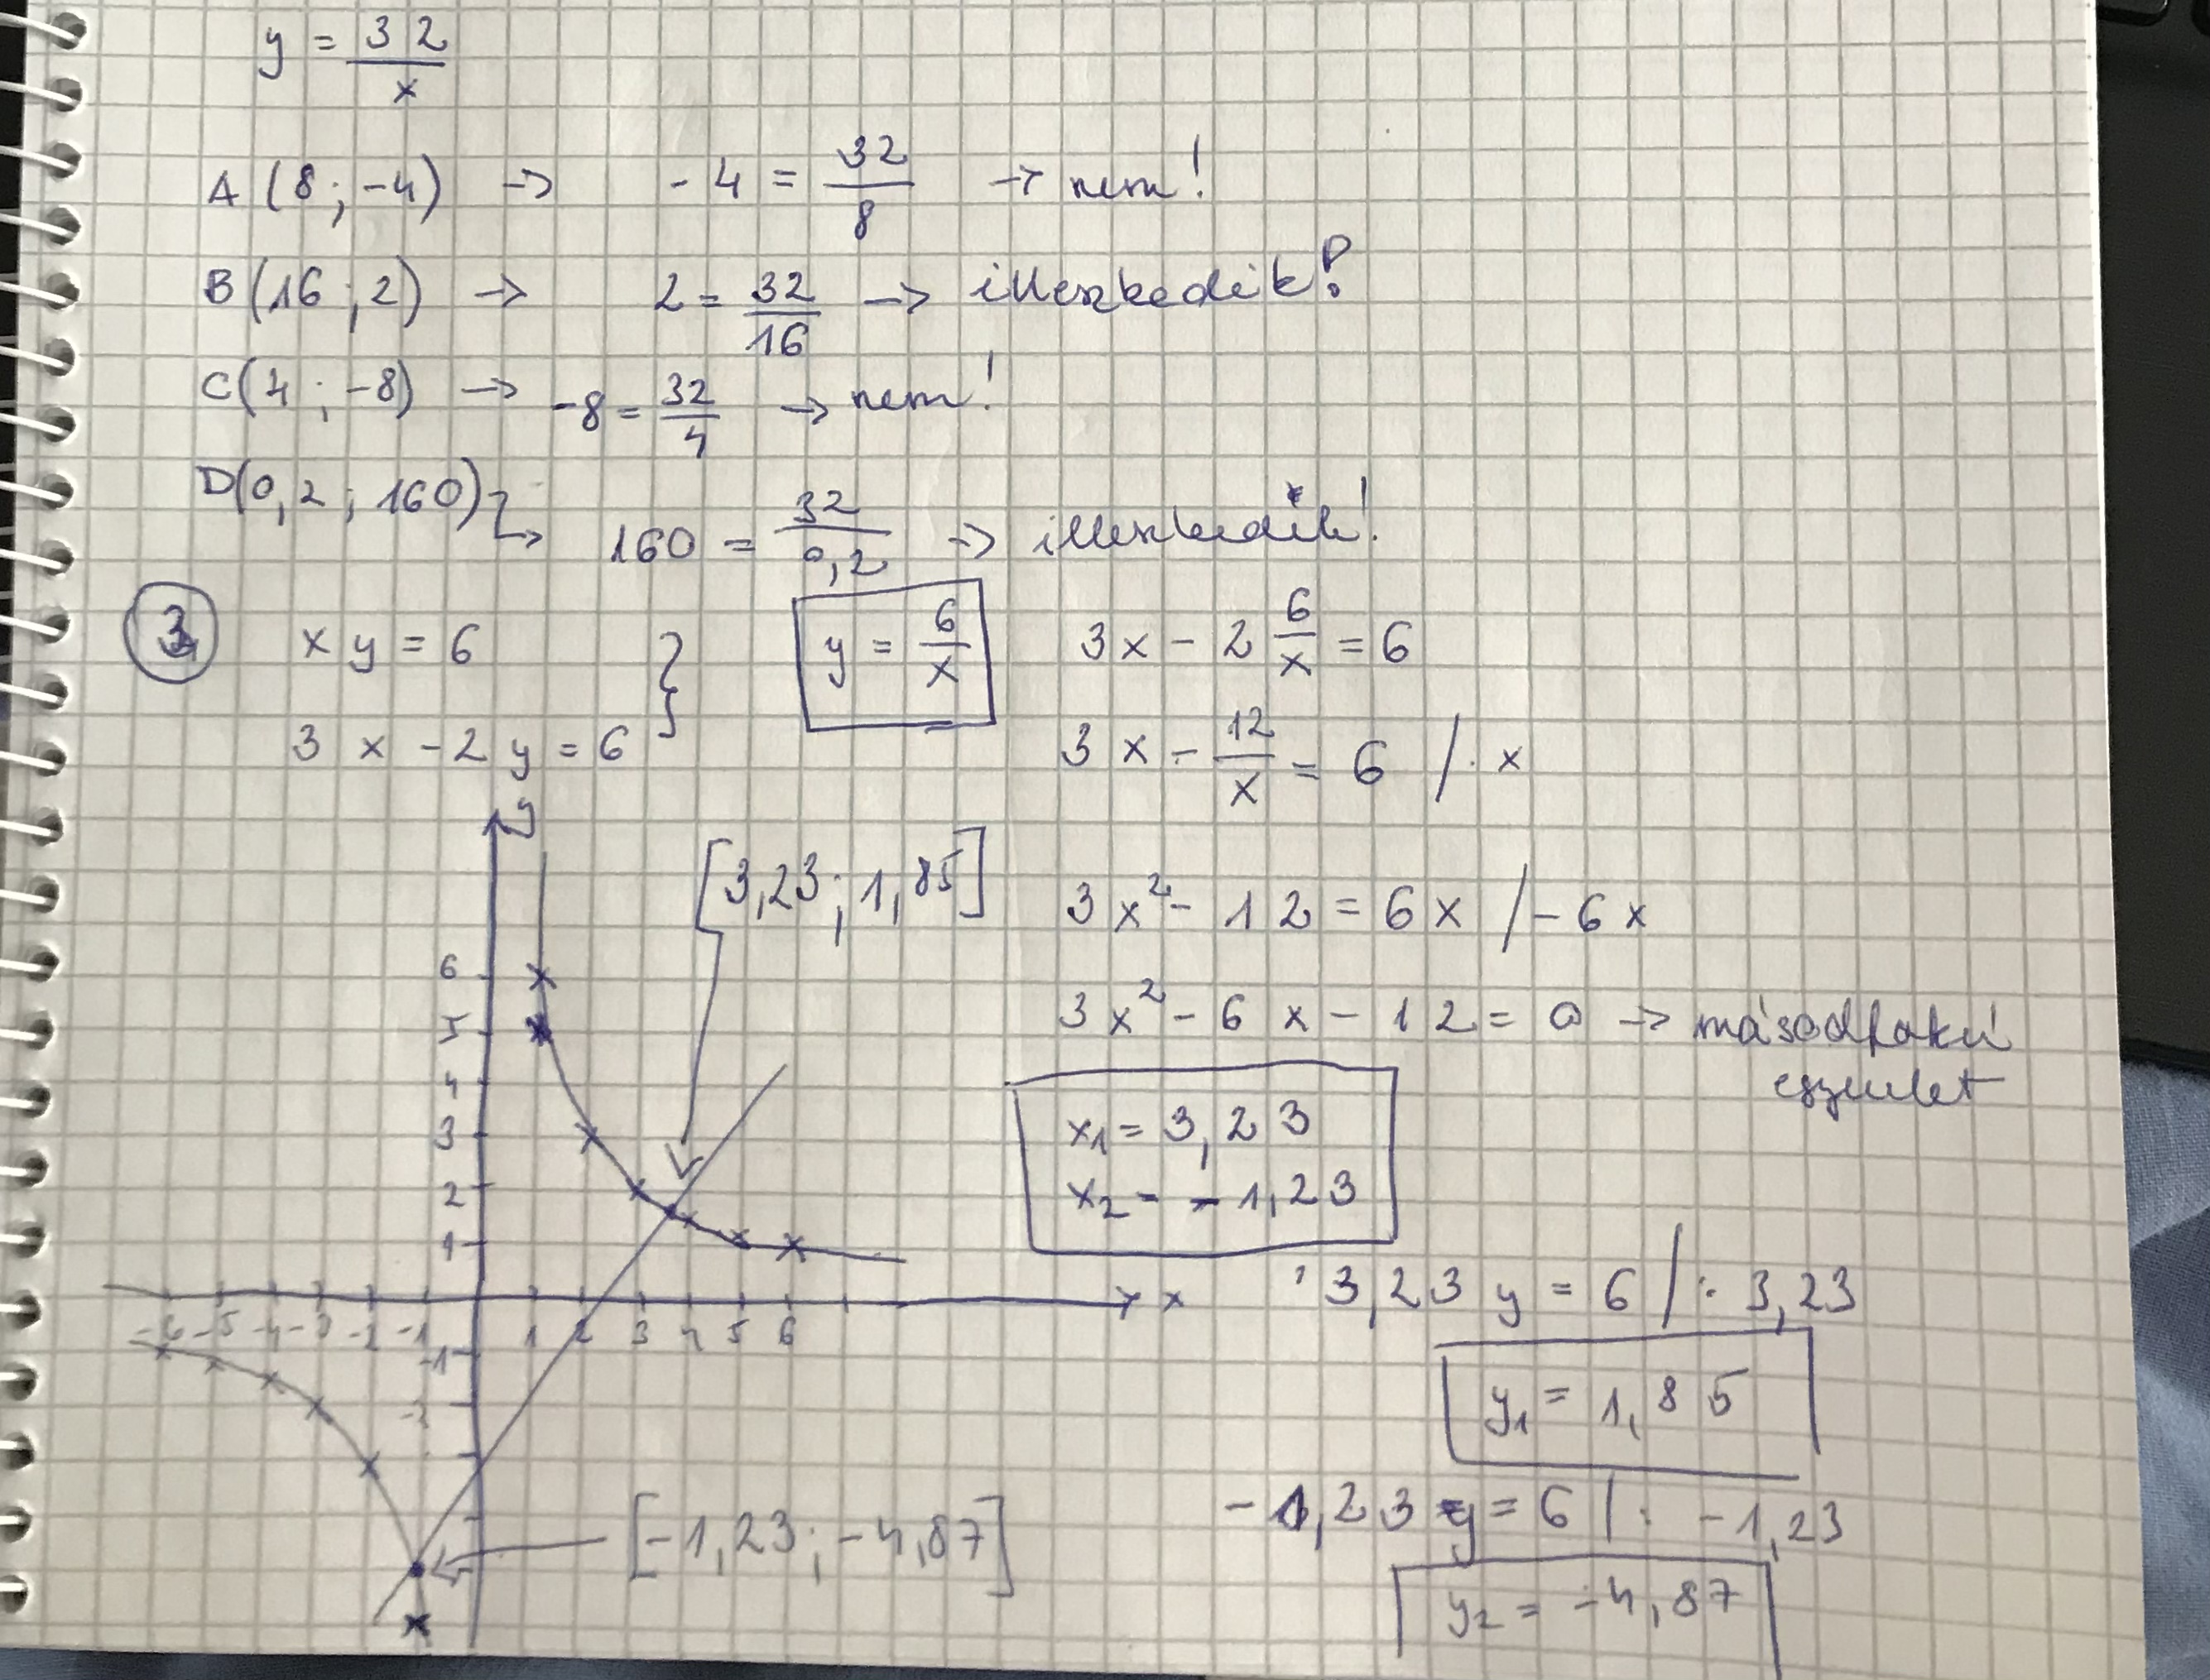 y = 32/x
A (8 ; -4) → -4 = 32/8 → nem!
B (16 ; 2) → 2 = 32/16 → illeszkedik!
C (4 ; -8) → -8 = 32/4 → nem!
D (0,2 ; 160) → 160 = 32/0,2 → illeszkedik!
3
x y = 6
3 x - 2 y = 6
y = 6/x
3x - 2 6/x = 6
3x - 12/x = 6 / · x
3x² - 12 = 6x / - 6x
3x² - 6x - 12 = 0 → másodfokú
egyenlet
x₁ = 3,23
x₂ = -1,23
3,23 y = 6 / : 3,23
y₁ = 1,85
-1,23 y = 6 / : -1,23
y₂ = -4,87
y
[3,23 ; 1,85]
6
5
4
3
2
1
-6 -5 -4 -3 -2 -1 1 2 3 4 5 6 x
-1
-2
[-1,23 ; -4,87]